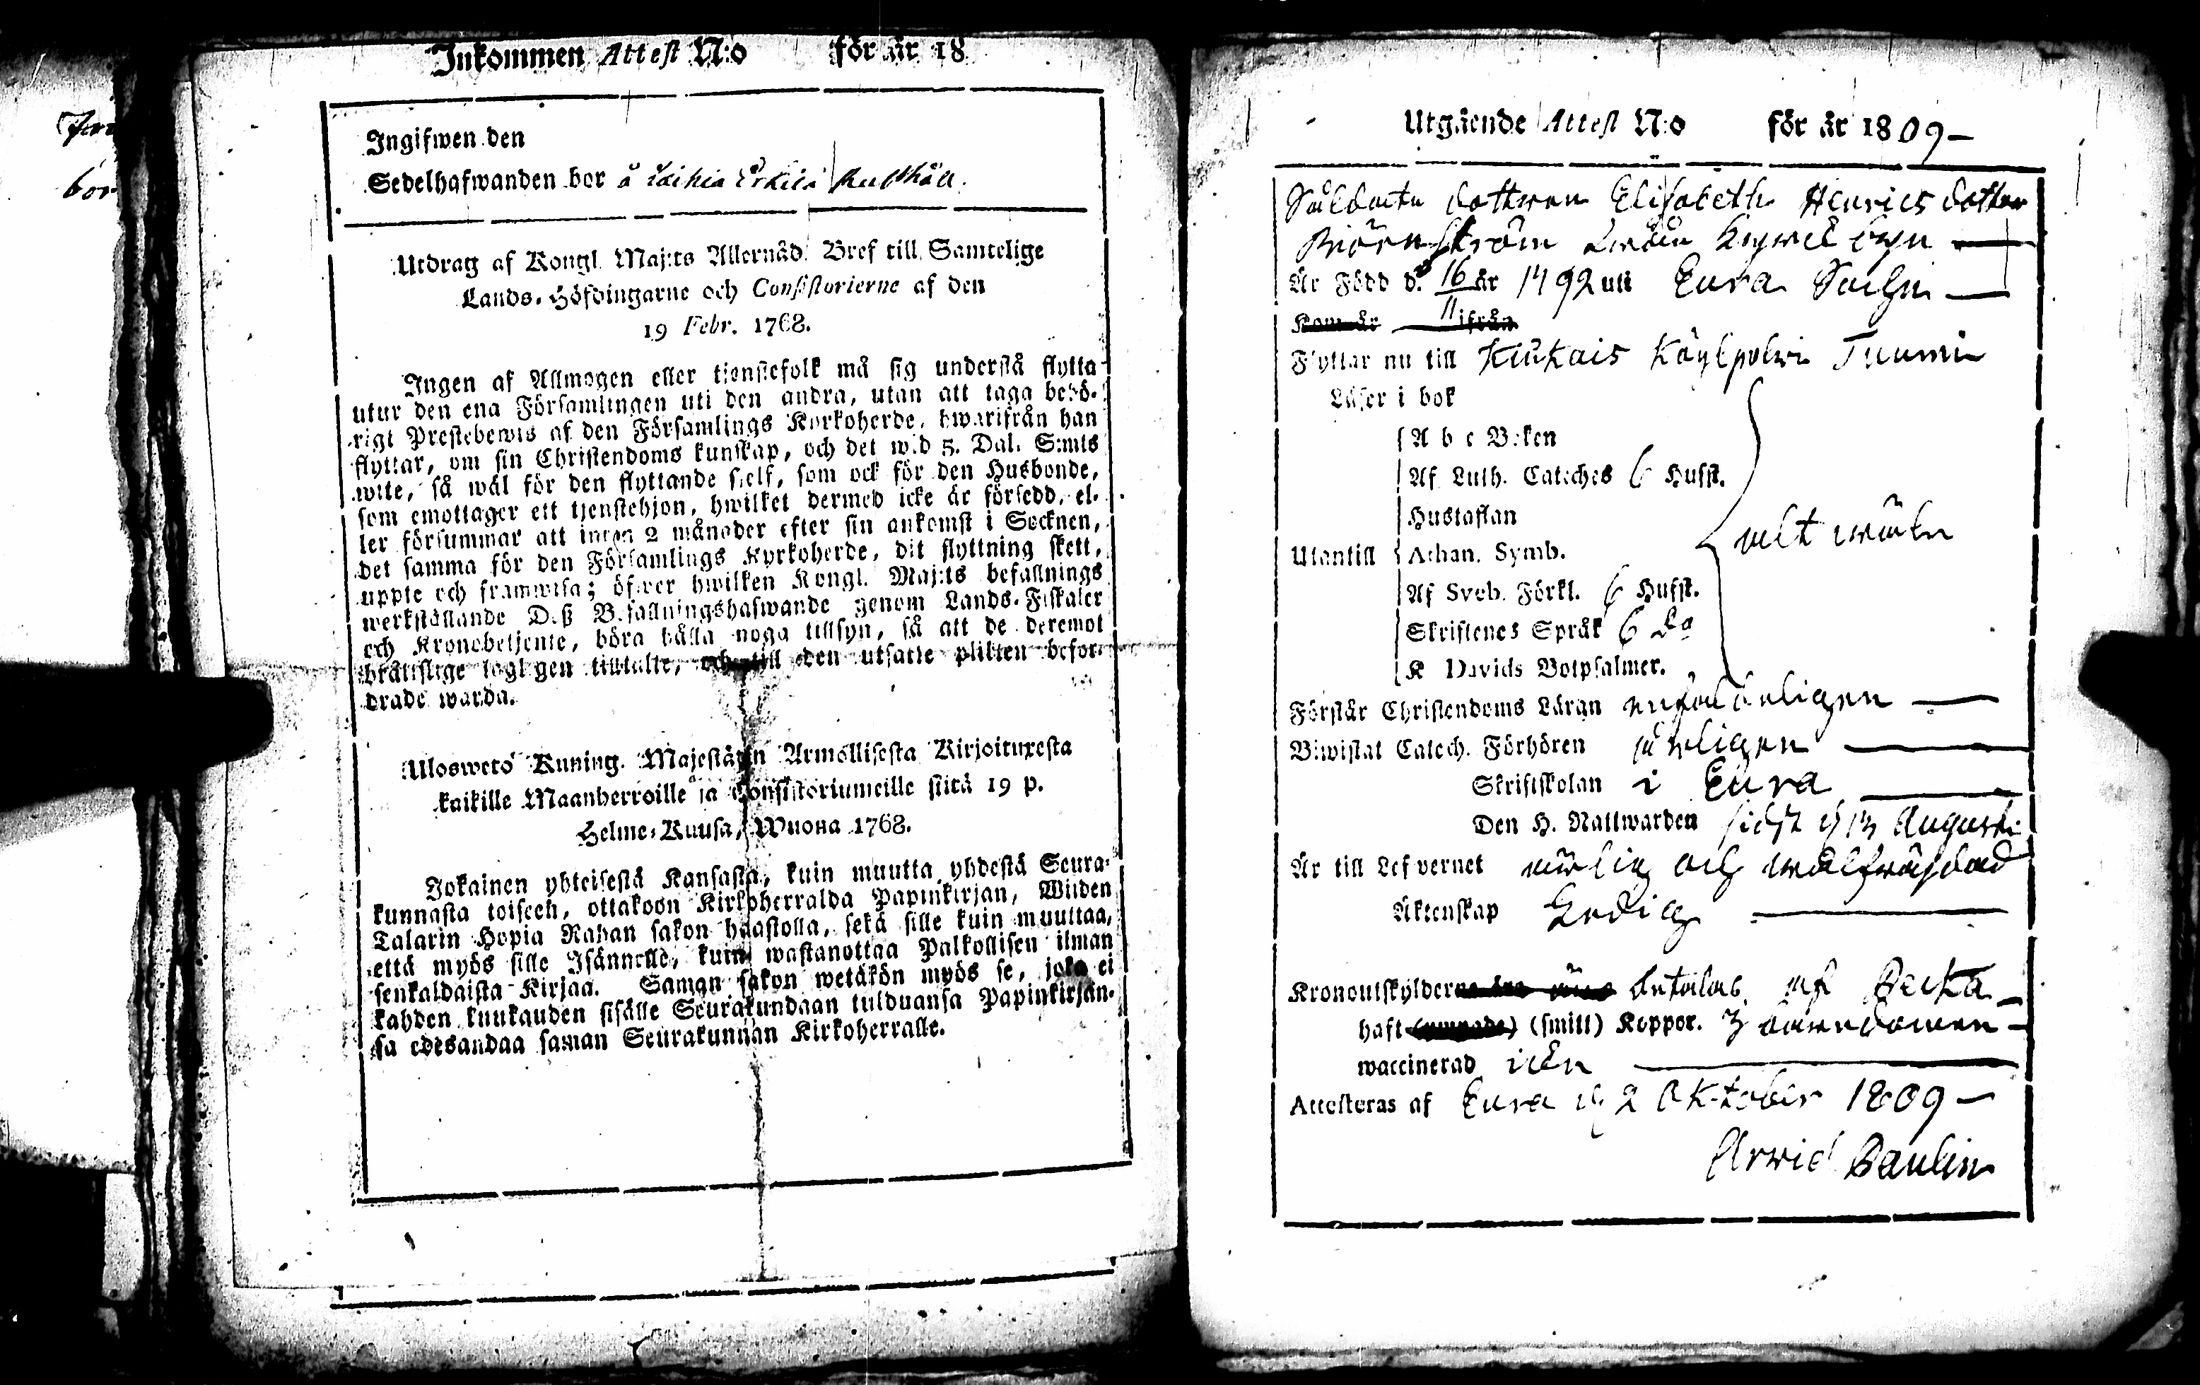 Inkommen Attest N:o för år 18
Ingifwen den
Sedelhafwanden bor å
Utdrag af Kongl. Maj:ts Allernåd. Bref till Samtelige
Lands-Höfdingarne och Consistorierne af den
19 Febr. 1768.
Ingen af Allmogen eller tjenstefolk må sig understå flytta
utur den ena Församlingen uti den andra, utan att taga behö-
rigt Prestebewis af den Församlings Kyrkoherde, hwarifrån han
flyttar, om sin Christendoms kunskap, och det wid 5. Dal. S:mts
wite, så wäl för den flyttande sjelf, som ock för den Husbonde,
som emottager ett tjenstehjon, hwilket dermed icke är försedd, el-
ler försummar att inom 2 månader efter sin ankomst i Socknen,
det samma för den Församlings Kyrkoherde, dit flyttning skett,
uppte och framwisa; öfwer hwilken Kongl. Maj:ts befallnings
werkställande Deß Befallningshafwande genom Lands-Fiskaler
och Kronobetjente, böra hålla noga tillsyn, så att de deremot
bråttslige lagligen tilltalte, och till den utsatte plikten befor-
drade warda.
Uloswetö Kuning. Majestätin Armollisesta Kirjoituxesta
kaikille Maanherroille ja Consistoriumeille siitä 19 p.
Helme-Kuusa, Wuona 1768.
Jokainen yhteisestä Kansasta, kuin muutta yhdestä Seura-
kunnasta toiseen, ottakoon Kirkoherralda Papinkirjan, Wiiden
Talarin Hopia Rahan sakon haastolla, sekä sille kuin muuttaa,
että myös sille Isännelle, kuin wastanottaa Palkollisen ilman
senkaldaista Kirjaa. Saman sakon wetäkön myös se, joka ei
kahden kuukauden sisälle Seurakundaan tulduansa Papinkirjan-
sa edesandaa saman Seurakunnan Kirkoherralle.
Utgående Attest N:o för år 1809
Elisabeth Henricsdotter
Björnström
Är Född d. 16/11 år 1792 uti Eura Sochn
Kom år ifrån
Flyttar nu till Kiukais Köylpolvi Tuomi
Läser i bok
A b c Boken
Af Luth. Cateches 6 Hufst.
Hustaflan
Utantill Athan. Symb.
alt wäl
Af Sveb. Förkl. 6 Hufst.
Skriftenes Språk 6 Do
K Davids Botpsalmer.
Förstår Christendoms Läran enfaldeligen
Biwistat Catech. Förhören årligen
Skriftskolan i Eura
Den H. Nattwarden sidst d 13 Augusti
Är till Lefvernet ärlig och wälfräjdad
Äktenskap Ledig
Kronoutskylderne betalas af
haft (smitt) Koppor.
waccinerad icke
Attesteras af Eura d 2 October 1809
Arvid Paulin